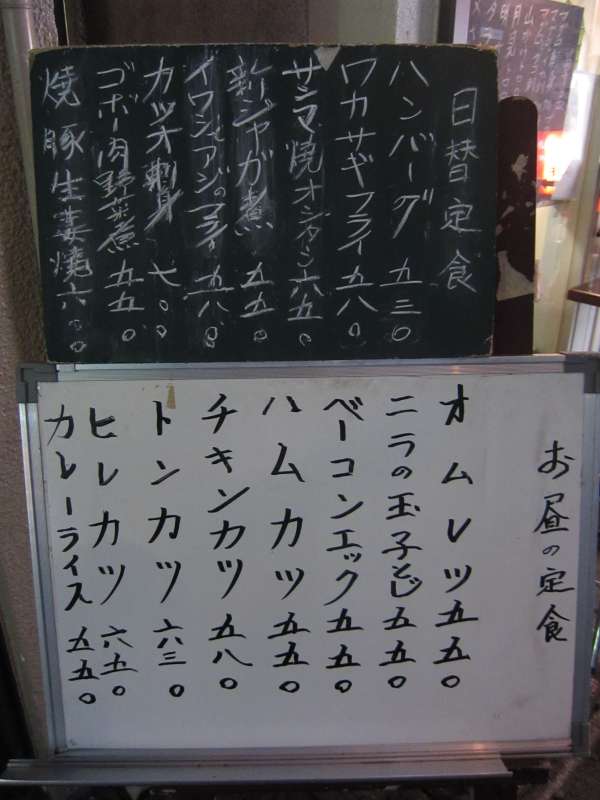 日替定食
ハンバーグ 五三〇
ワカサギフライ 五八〇
サンマ焼オジヤン 六八五〇
新ジャガ煮 五五〇
イワシとアジのフライ 五八〇
カツオ刺身 七〇〇
ゴボー肉野菜煮 五五〇
焼豚生姜焼 六〇〇
お昼の定食
オムレツ 五五〇
ニラの玉子とじ 五五〇
ベーコンエッグ 五五〇
ハムカツ 五五〇
チキンカツ 五八〇
トンカツ 六三〇
ヒレカツ 六五〇
カレーライス 五五〇